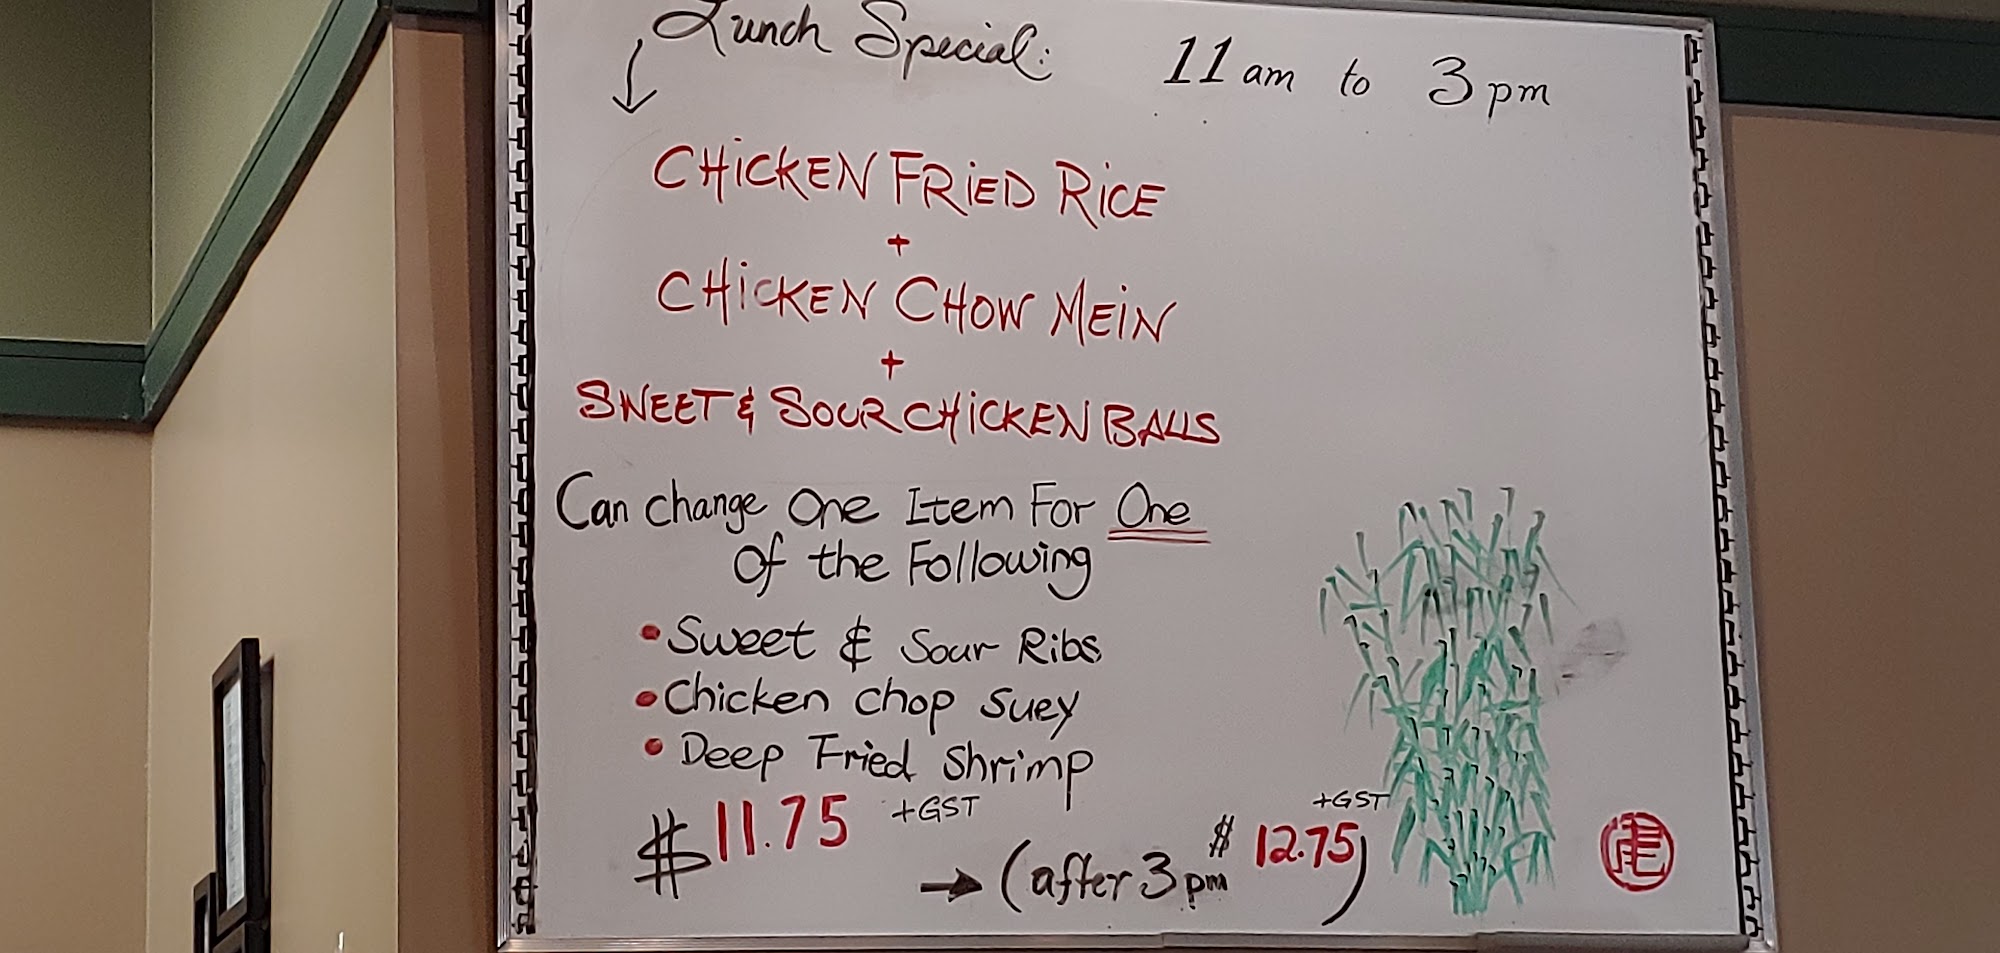 Lunch Special: 11 am to 3 pm
CHiCKEN FRiED RiCE
+
CHiCKEN CHOW MEiN
+
SWEET & SOUR CHiCKEN BALLS
Can change One Item For One
of the Following
• Sweet & Sour Ribs
• Chicken Chop Suey
• Deep Fried Shrimp
$11.75 +GST
→ (after 3 pm $12.75) +GST